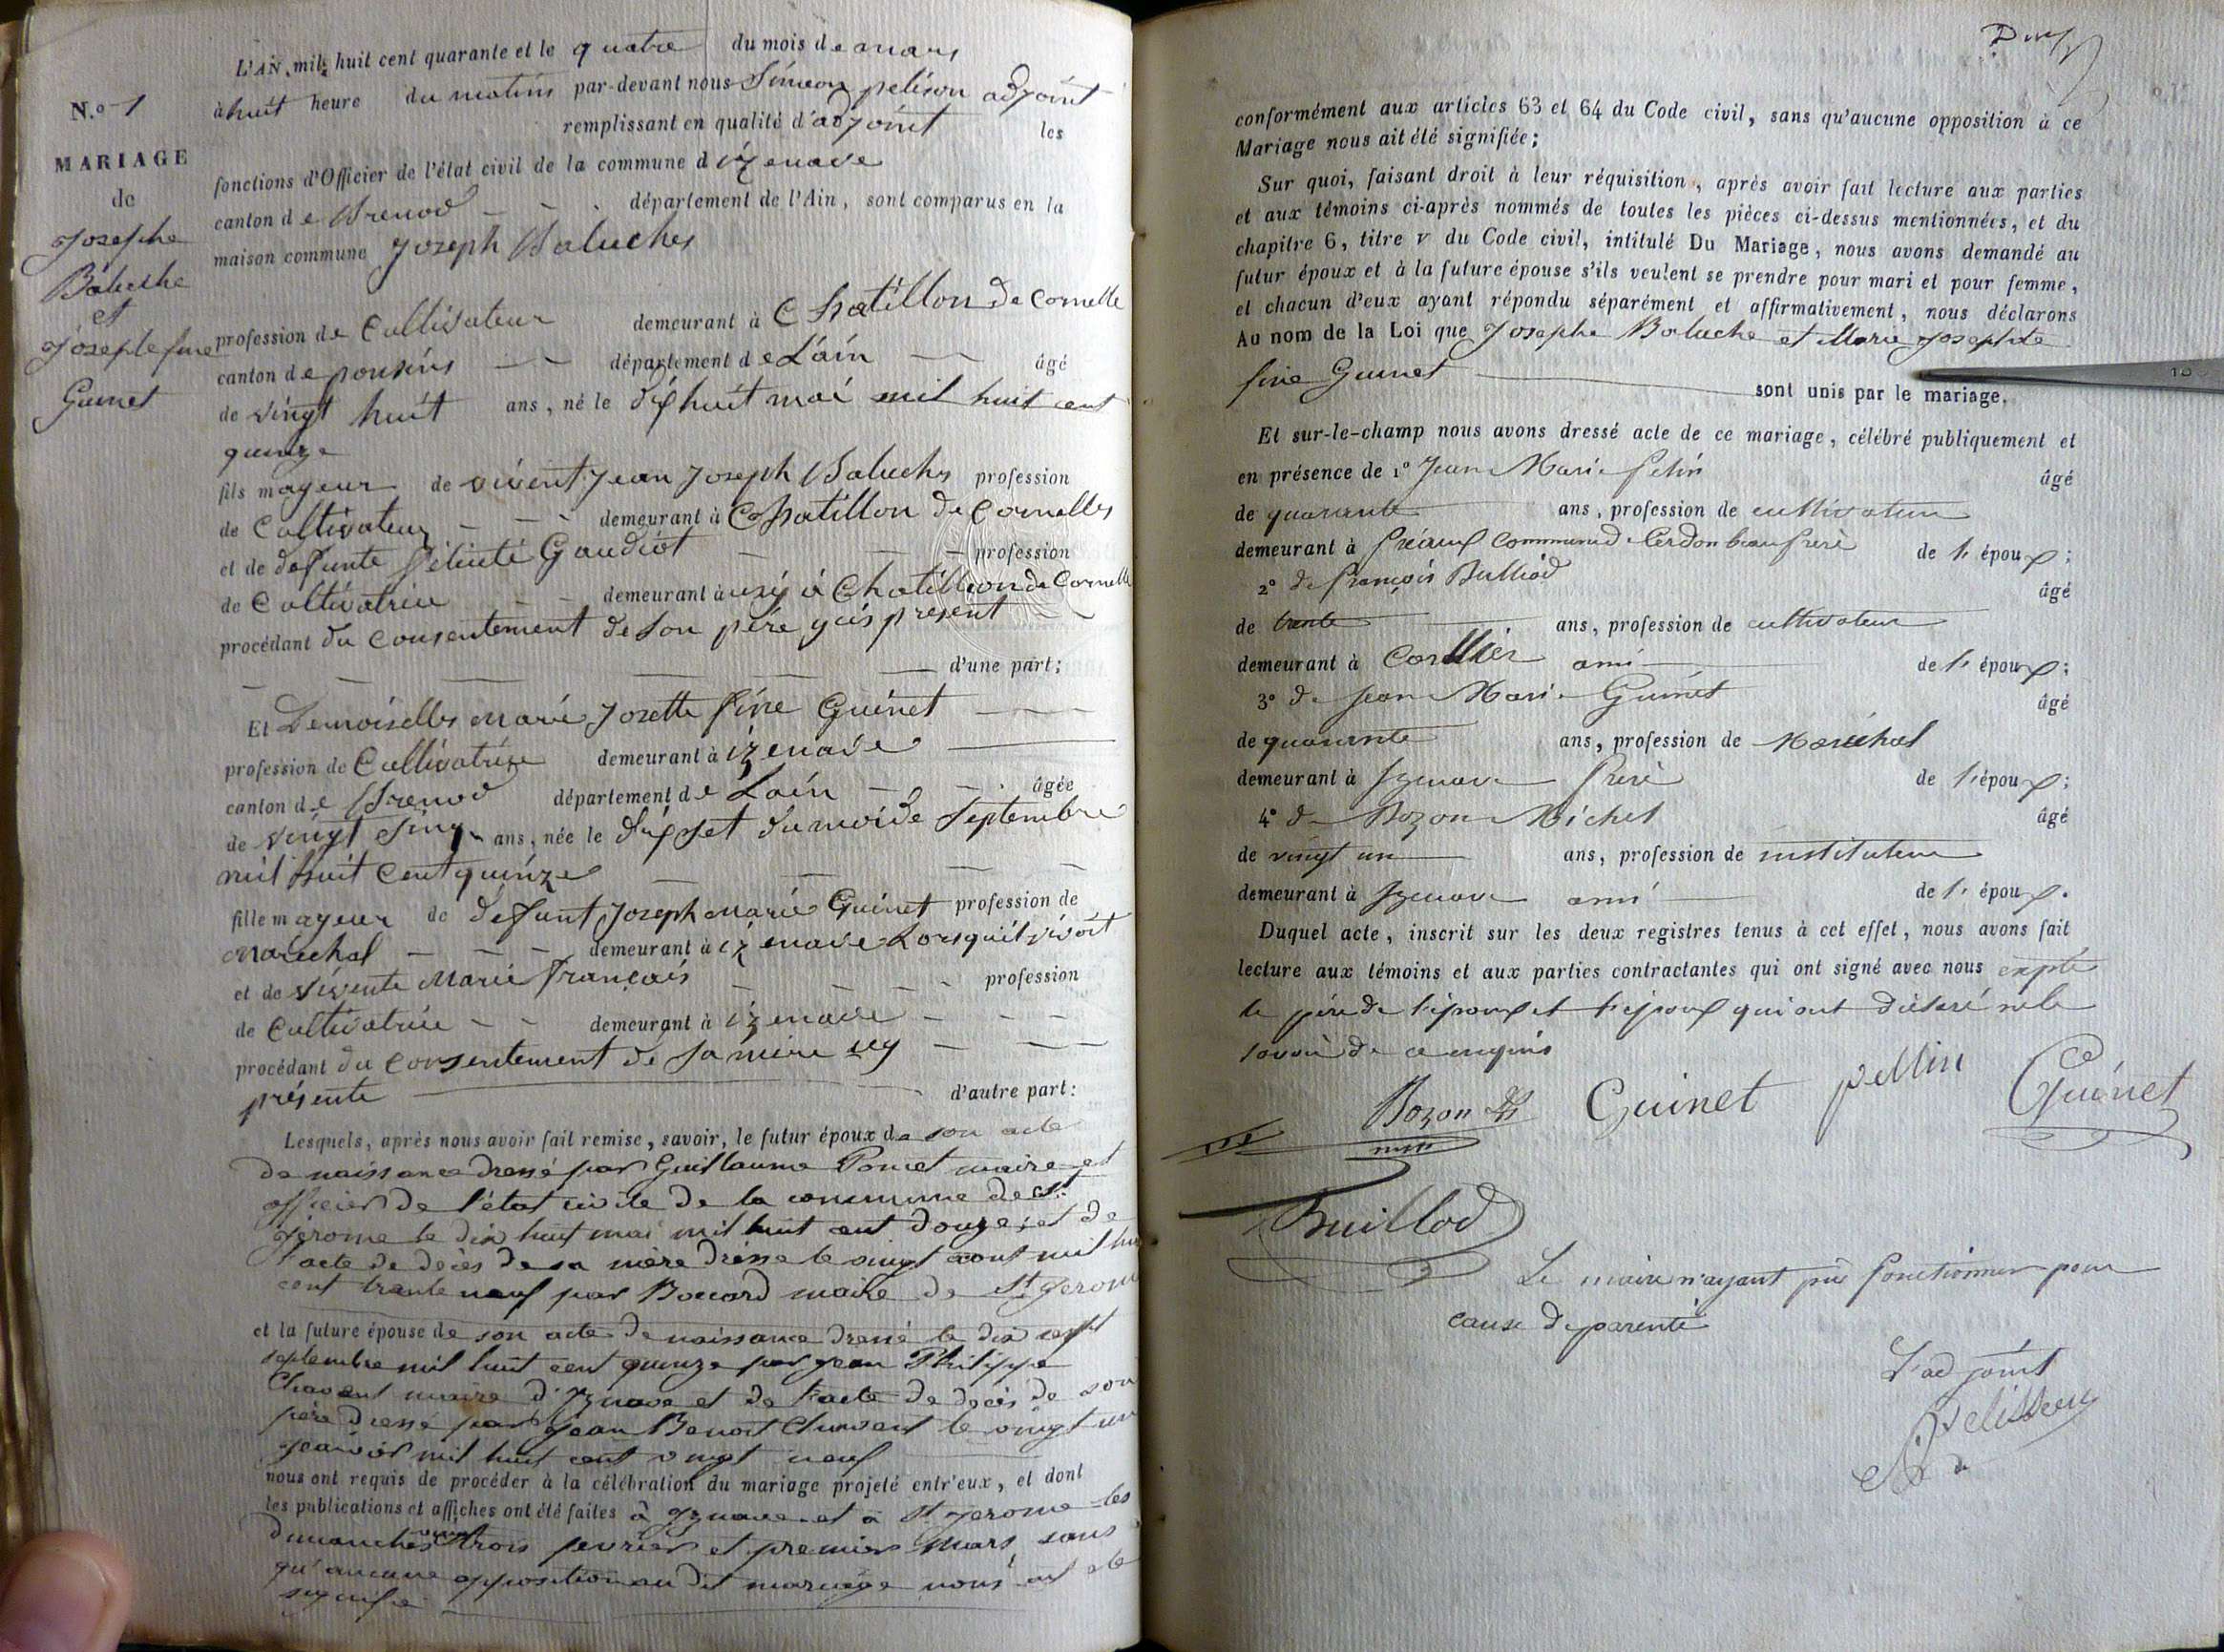 N.º 1
MARIAGE
de
Josephe
Baluche
et
Josephe fine
Guinet
L'AN mil huit cent quarante et le quatre du mois de mars
à huit heure du matin par-devant nous Siméon pelisson adjoint
remplissant en qualité d'adjoint les
fonctions d'Officier de l'état civil de la commune d izenave
canton de Brenod département de l'Ain, sont comparus en la
maison commune Joseph Baluche
profession de Cultivateur demeurant à Chatillon de Cornelle
canton de poncins département de L'ain âgé
de vingt huit ans, né le dix huit mai mil huit cent
quinze
fils mayeur de vivent Jean Joseph Baluche profession
de Cultivateur demeurant à Chatillon de Cornelle
et de defunte féliscité Gaudiot profession
de Cultivatrice demeurant à Chatillion de Cornelle
procédant du consentement de son père présent
d'une part;
Et Demoiselle marie Josette fine Guinet
profession de Cultivatrice demeurant à izenave
canton de Brenod département de Lain âgée
de vingt sinq ans, née le dix set du moi de Septembre
mil huit cent quinze
fille mayeur de defunt Joseph marie Guinet profession de
Maréchal demeurant à izenave Lorsquil vivoit
et de vivente Marie françois profession
de Cultivatrice demeurant à izenave
procédant du consentement de sa mère icy
présente d'autre part:
Lesquels, après nous avoir fait remise, savoir, le futur époux de son acte
de naissance dressé par Guillaume Poncet maire et
officier de l'état civile de la commune de St
Jérome le dix huit mai mil huit cent douze; et de
l'acte de décès de sa mère dressé le vingt aout mil hui
cent trente neuf par Boccard maire de St Jerome
et la future épouse de son acte de naissance dressé le dix sept
septembre mil huit cent quinze par jean Philippe
Chavent maire d'Izenave et de l'acte de décès de son
père dressé par Jean Benoit Chavent le vingt un
janvier mil huit cent vingt neuf
nous ont requis de procéder à la célébration du mariage projeté entr'eux, et dont
les publications et affiches ont été faites à Izenave et à St Jerome les
dimanches vingt trois fevrier et premier mars sans
qu'aucune opposition au dit mariage nous ait été
signifié
conformément aux articles 63 et 64 du Code civil, sans qu'aucune opposition à ce
Mariage nous ait été signifiée;
Sur quoi, faisant droit à leur réquisition, après avoir fait lecture aux parties
et aux témoins ci-après nommés de toutes les pièces ci-dessus mentionnées, et du
chapitre 6, titre v du Code civil, intitulé Du Mariage, nous avons demandé au
futur époux et à la future épouse s'ils veulent se prendre pour mari et pour femme,
et chacun d'eux ayant répondu séparément et affirmativement, nous déclarons
Au nom de la Loi que Josephe Baluche et Marie Josephte
fine Guinet sont unis par le mariage.
Et sur-le-champ nous avons dressé acte de ce mariage, célébré publiquement et
en présence de 1º Jean Marie Pelin âgé
de quarante ans, profession de cultivateur
demeurant à commune de Cerdon beau frere de l'époux;
2º de françois Bulliod âgé
de trente ans, profession de cultivateur
demeurant à Corllier ami de l'époux;
3º de Jean Marie Guinet âgé
de quarante ans, profession de Maréchal
demeurant à Izenave frere de l'époux;
4º de Bozon Michel âgé
de vingt un ans, profession de instituteur
demeurant à Izenave ami de l'époux.
Duquel acte, inscrit sur les deux registres tenus à cet effet, nous avons fait
lecture aux témoins et aux parties contractantes qui ont signé avec nous expté
le père de l'époux et l'époux qui ont déclaré ne le
savoir de ce enquis
Bozon Guinet pellin Guénet
Buillod
Le maire n'ayant pû fonctionner pour
cause de parenté
L'adjoint
Pelisson